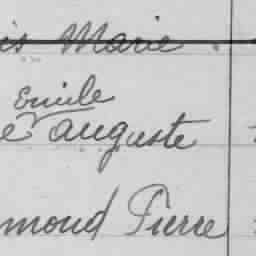 is Marie
Emile
e Auguste
mond Pierre